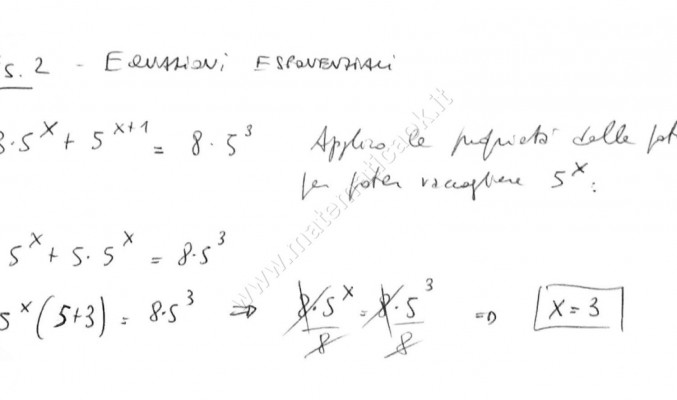 s. 2 - EQUAZIONI ESPONENZIALI
3·5^x + 5^(x+1) = 8·5^3 Applico le proprietà delle pot
per poter raccogliere 5^x:
5^x + 5·5^x = 8·5^3
5^x (5+3) = 8·5^3 ⇒ 8·5^x/8 = 8·5^3/8 ⇒ x = 3
www.matematicaok.it